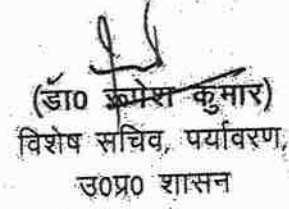 (डॉ0 रूपेश कुमार)
विशेष सचिव, पर्यावरण,
उ0प्र0 शासन